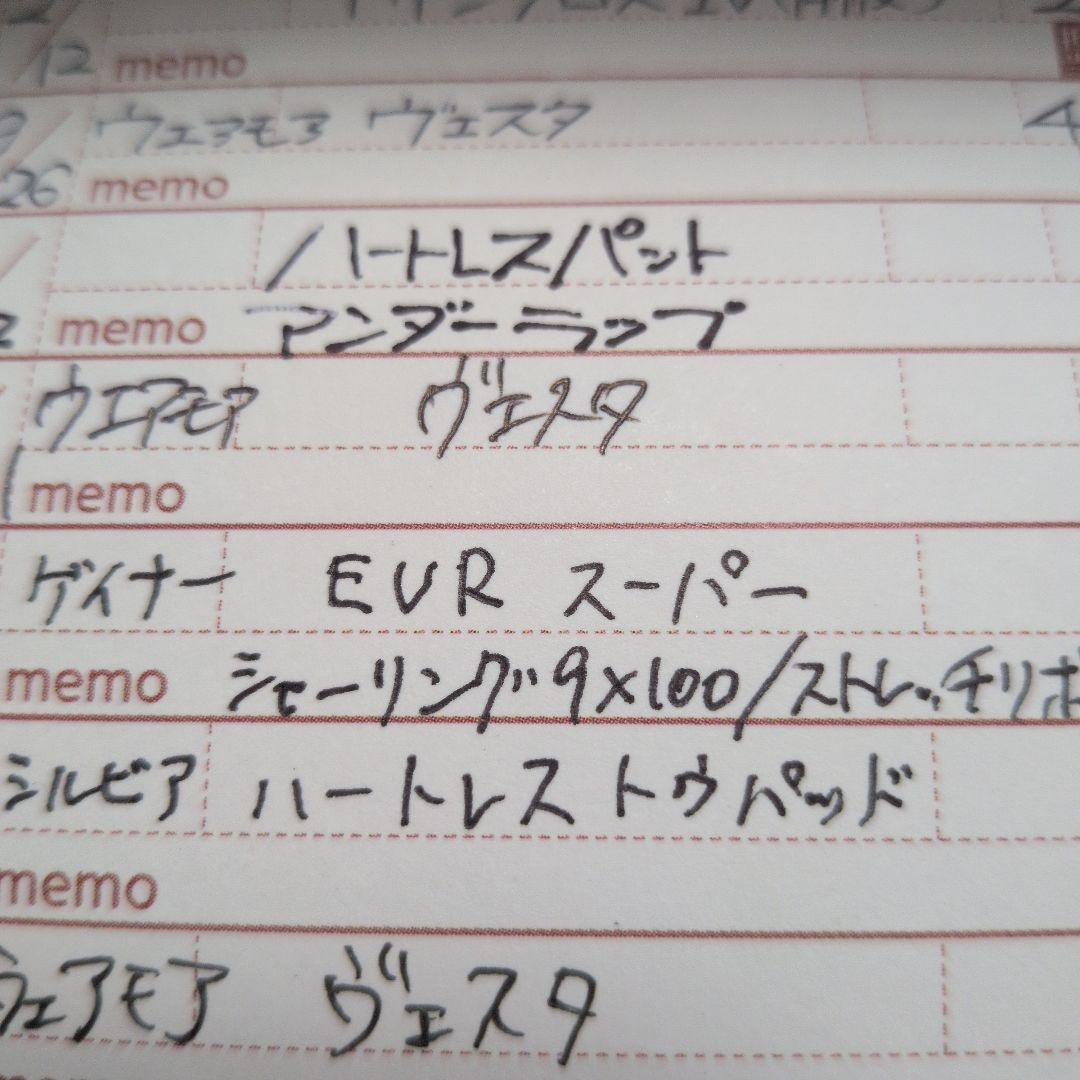 12 memo
ウェアモア ヴェスタ 4
26 memo
/ハートレスパット
memo アンダーラップ
ウエアモア ヴェスタ
memo
ゲイナー EVR スーパー
memo シャーリング9×100/ストレッチリボ
シルビア ハートレス トウパッド
memo
ウェアモア ヴェスタ